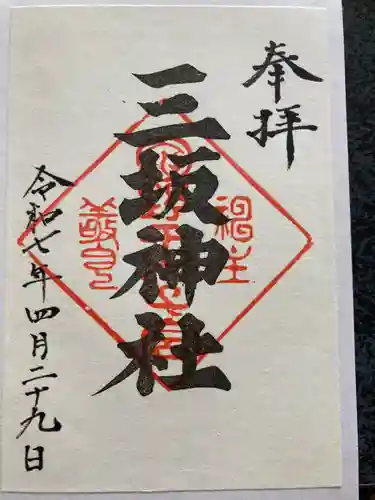 奉拝
三坂神社
令和七年四月二十九日